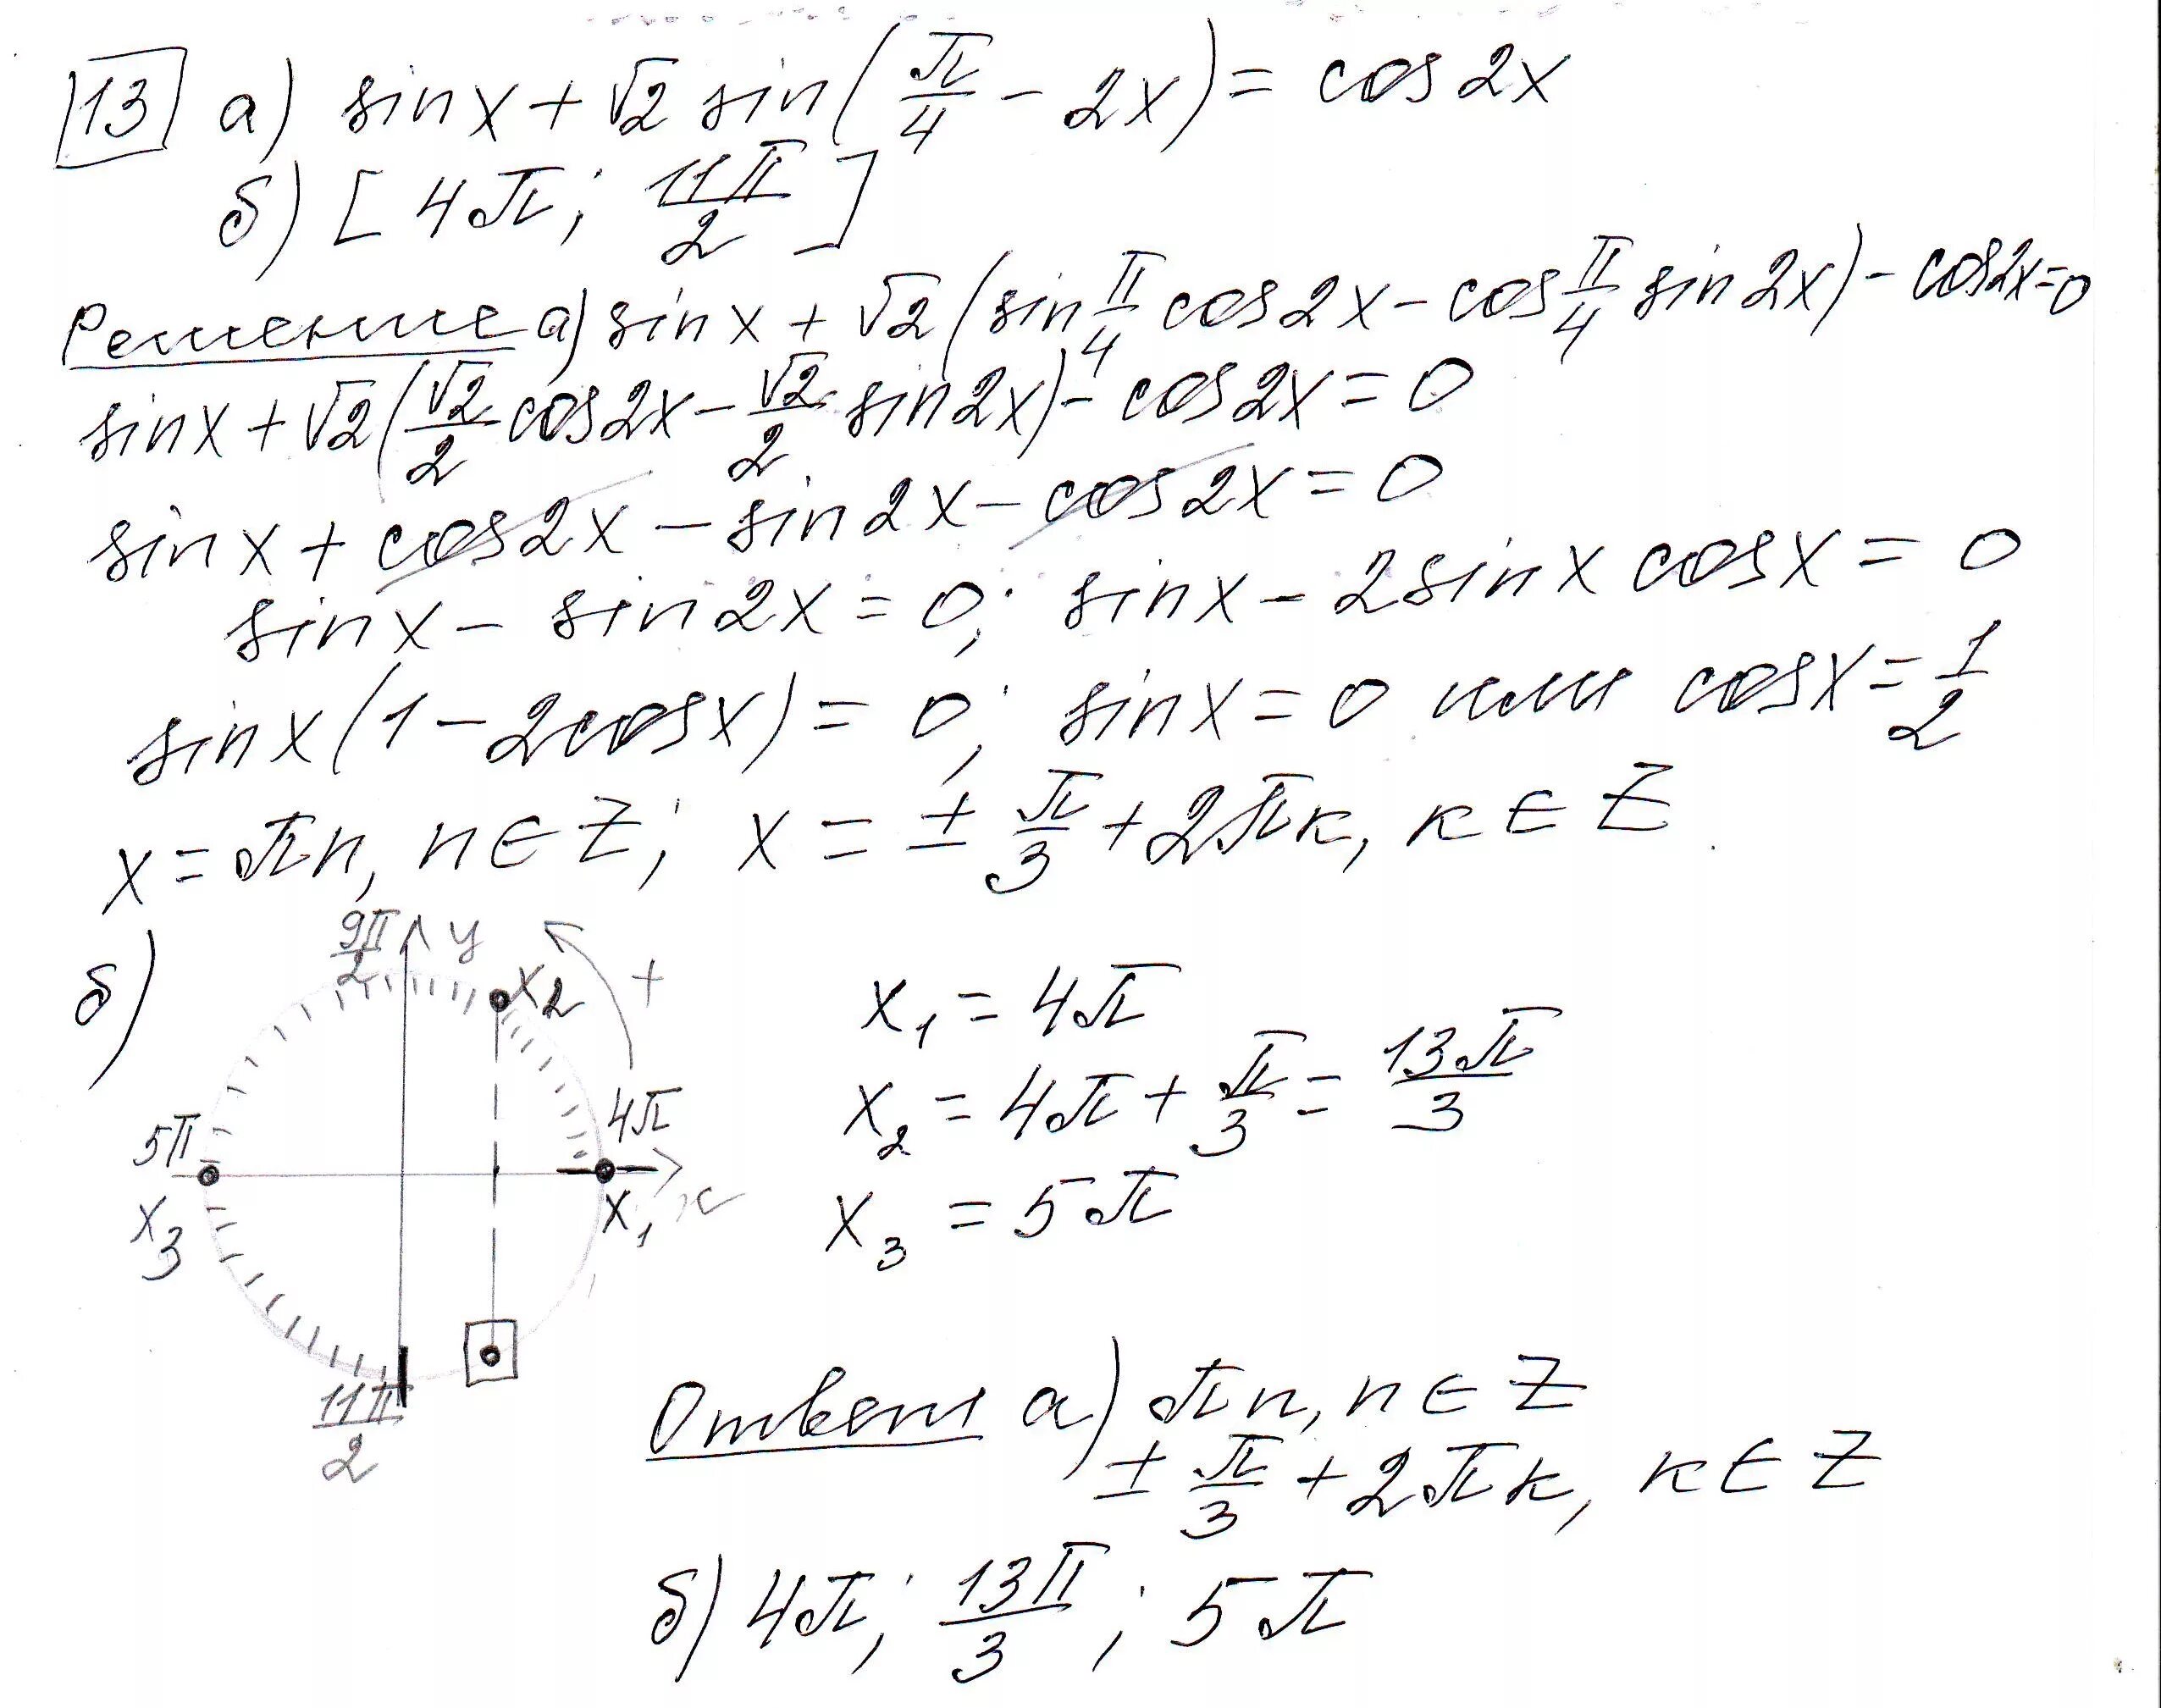 13 а) sin x + √2 sin(π/4 − 2x) = cos 2x
б) [4π; 11π/2]
Решение а) sin x + √2 (sin π/4 cos 2x − cos π/4 sin 2x) − cos 2x = 0
sin x + √2 (√2/2 cos 2x − √2/2 sin 2x) − cos 2x = 0
sin x + cos 2x − sin 2x − cos 2x = 0
sin x − sin 2x = 0; sin x − 2 sin x cos x = 0
sin x (1 − 2cos x) = 0; sin x = 0 или cos x = 1/2
x = πn, n ∈ Z; x = ± π/3 + 2πк, к ∈ Z
б)
9π/2 y
x2 +
5π 4π
x3 x1 x
11π/2
x1 = 4π
x2 = 4π + π/3 = 13π/3
x3 = 5π
Ответ а) πn, n ∈ Z
± π/3 + 2πк, к ∈ Z
б) 4π; 13π/3; 5π